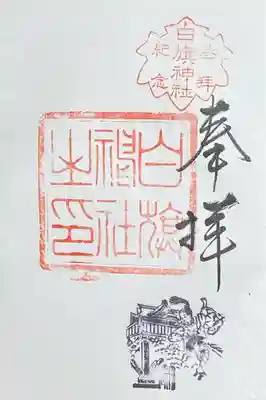 奉拝
白旗神社
参拝
紀念
白旗
神社
之印